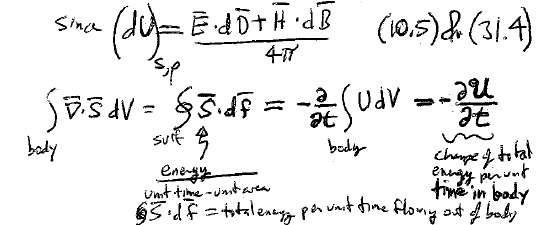 since (dU)_{s,ρ} = \frac{Ē·dD̄ + H̄·dB̄}{4π} (10.5) & (31.4)
∫_{body} ∇̄·S̄ dV = ∮_{surf} S̄·df̄ = -\frac{∂}{∂t} ∫_{body} U dV = -\frac{∂𝒰}{∂t}
energy
unit time - unit area
change of total
energy per unit
time in body
∮S̄·df̄ = total energy per unit time flowing out of body